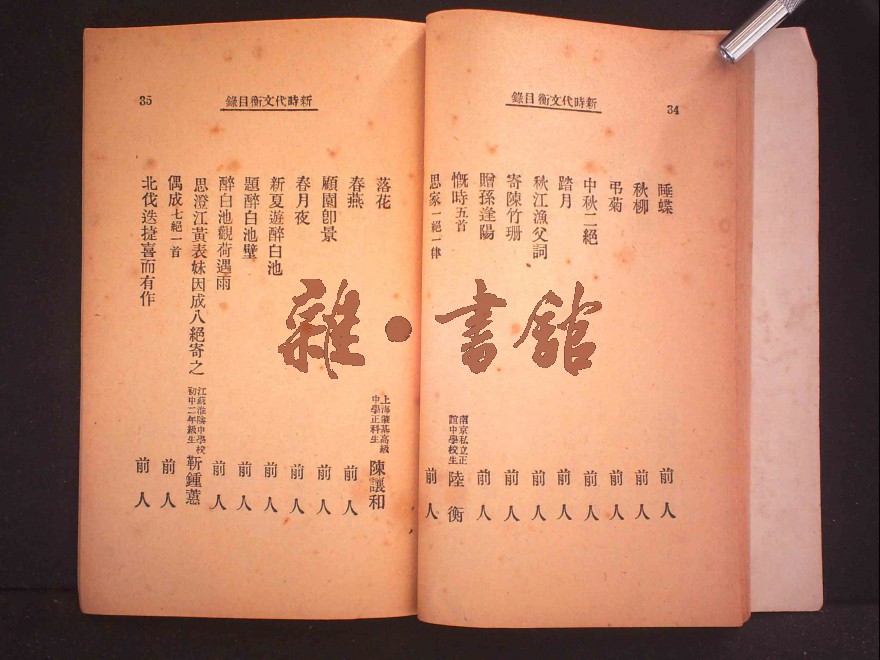 新時代文衡目錄
34
睡蝶 前人
秋柳 前人
弔菊 前人
中秋二絕 前人
踏月 前人
秋江漁父詞 前人
寄陳竹珊 前人
贈孫逢陽 前人
慨時五首 南京私立正誼中學校生 陸衡
思家一絕一律 前人
新時代文衡目錄
35
落花 上海肇基高級中學正科生 陳讓和
春燕 前人
顧園卽景 前人
春月夜 前人
新夏遊醉白池 前人
題醉白池壁 前人
醉白池觀荷遇雨 前人
思澄江黃表妹因成八絕寄之 江蘇淮陰中學校初中二年級生 靳鍾蕙
偶成七絕一首 前人
北伐迭捷喜而有作 前人
雜·書館